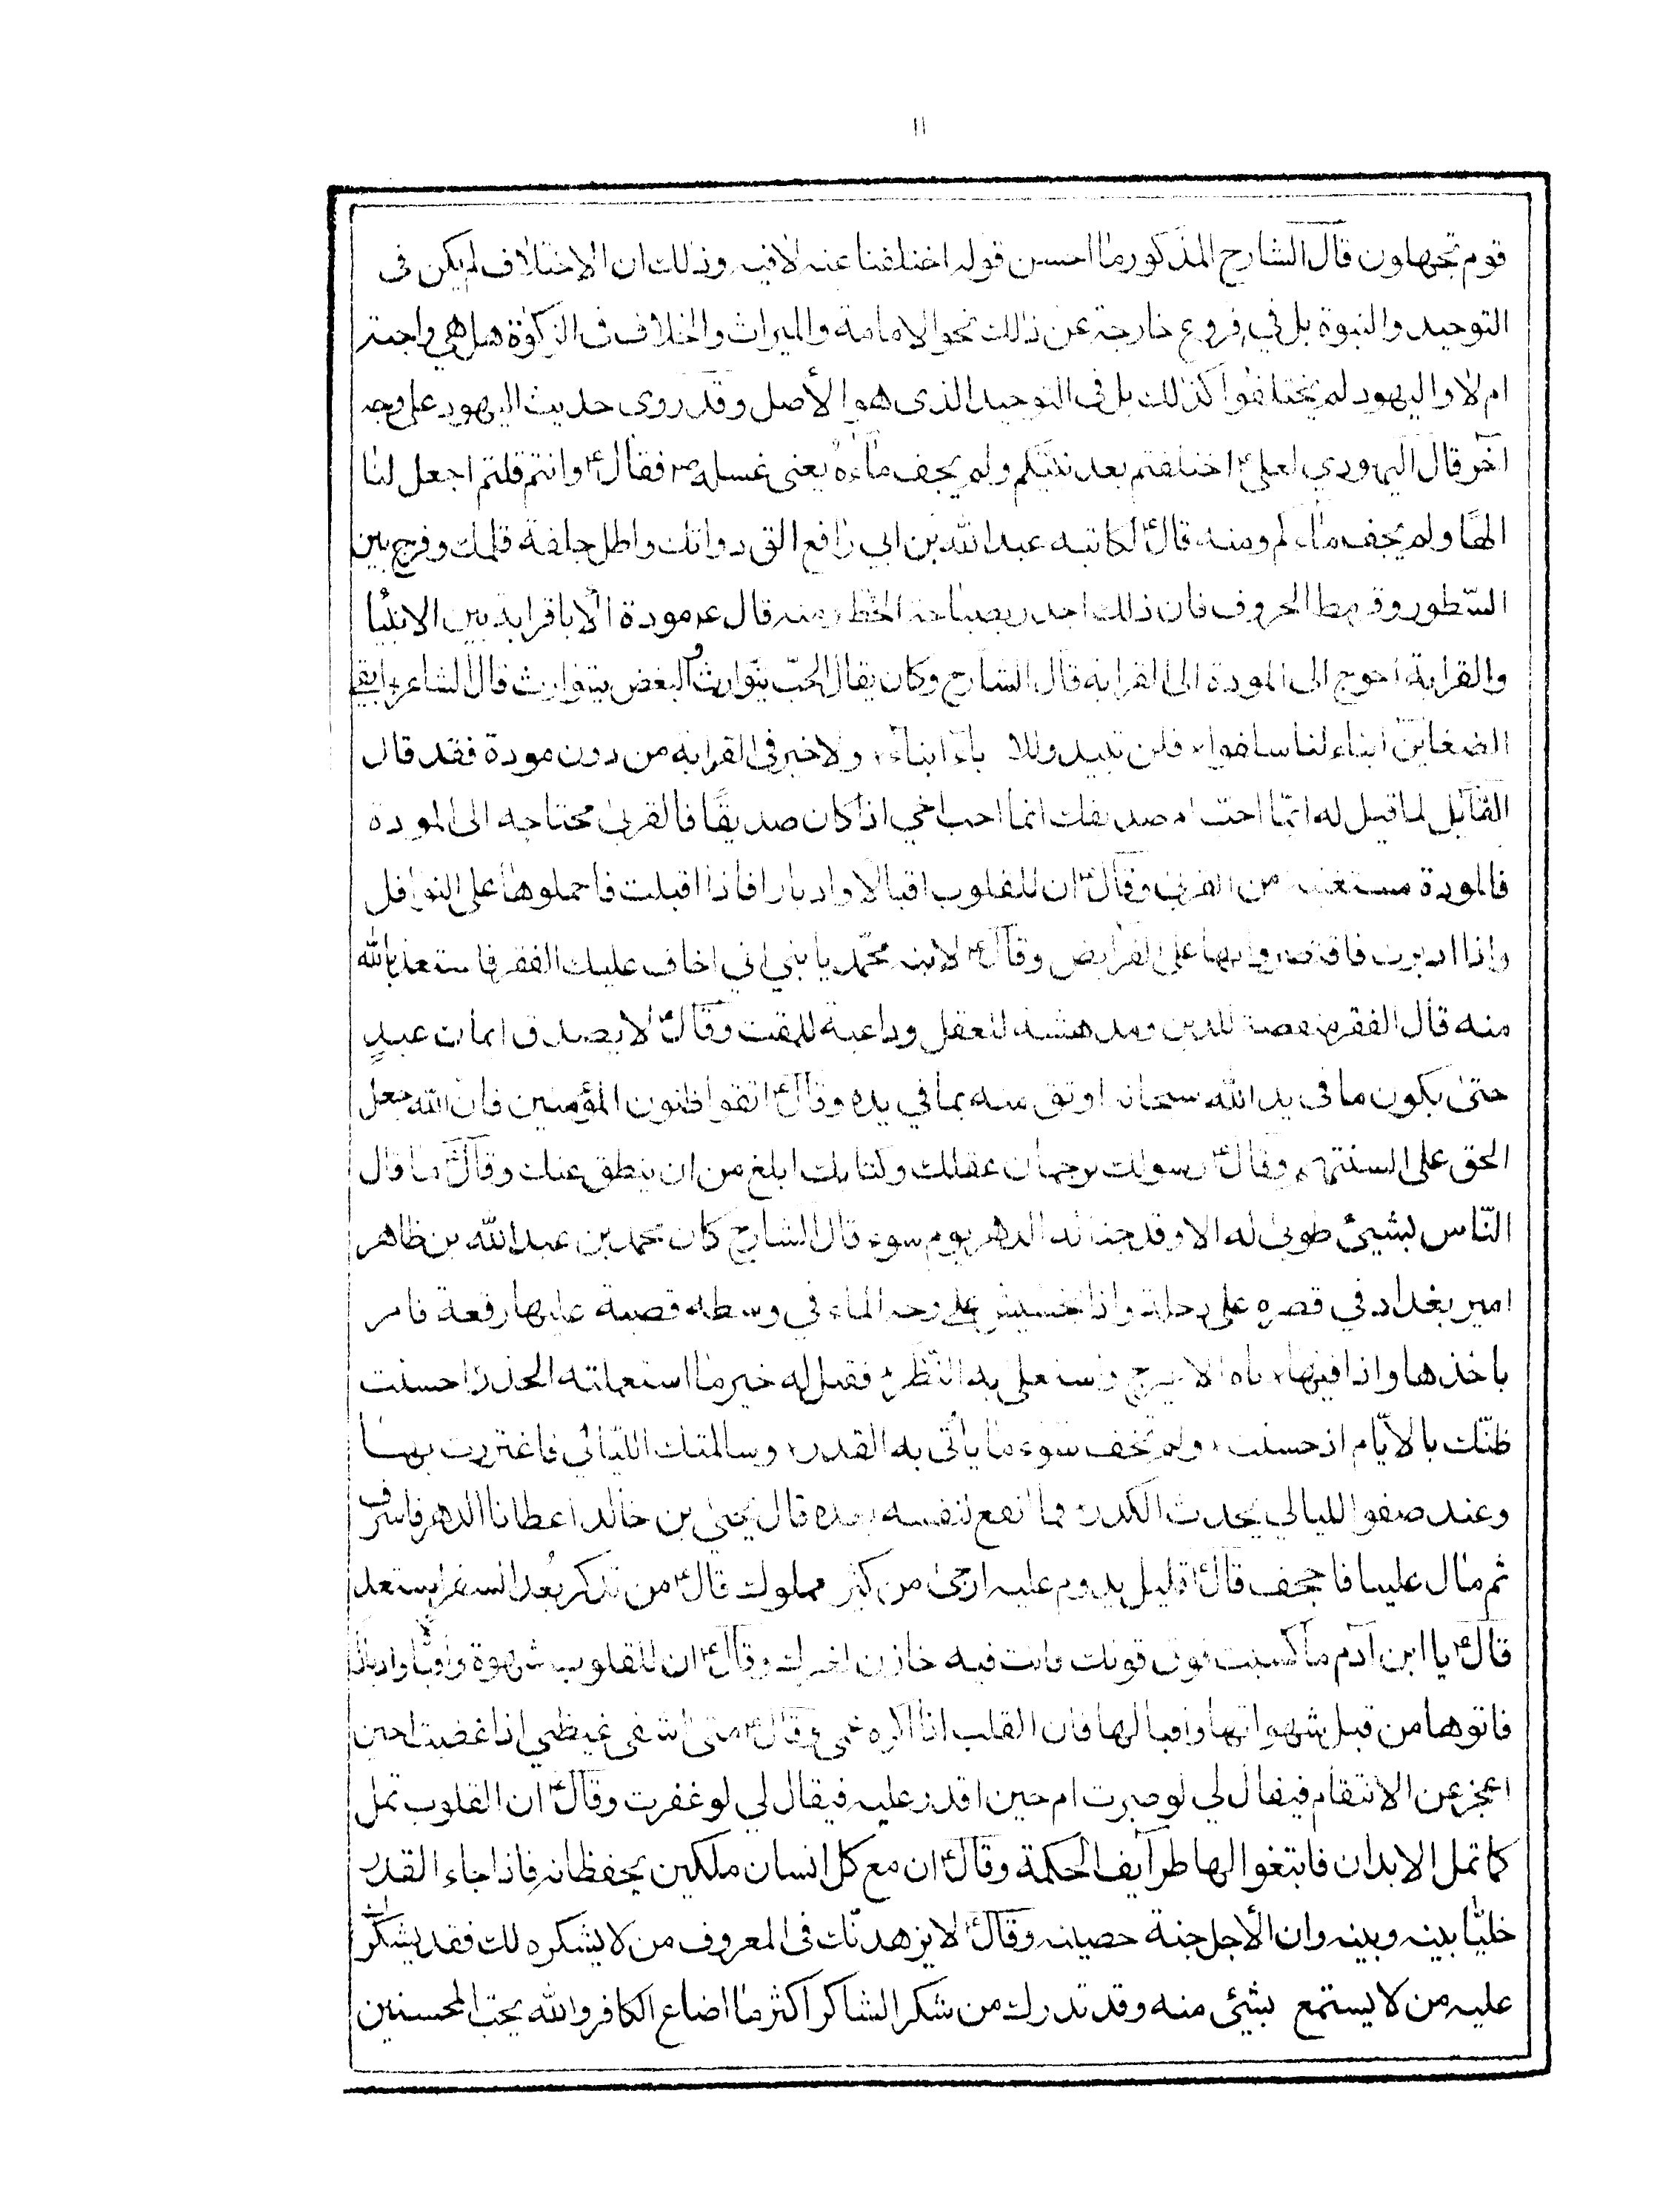 ١١
قوم تجهلون قال الشارح المذكور ما احسن قوله اختلفنا عنه لا فيه وذلك ان الاختلاف لم يكن فى
التوحيد والنبوة بل في فروع خارجة عن ذلك نحو الامامة والميراث والخلاف فى الزكوة هل هي واجبة
ام لا واليهود لم يختلفوا كذلك بل فى التوحيد الذى هو الأصل وقد روى حديث اليهود على وجه
آخر قال اليهودي لعلى ع اختلفتم بعد نبيكم ولم يجف ماءه يعنى غسله ص فقال ع وانتم قلتم اجعل لنا
الها ولم يجف ماءكم ومنه قال ع لكاتبه عبد الله بن ابي رافع الق دواتك واطل جلفة قلمك وفرج بين
السّطور وقرمط الحروف فان ذلك اجدر بصباحة الخط ومنه قال ع مودة الآباء قرابة بين الابناء
والقرابة احوج الى المودة الى القرابة قال الشارح وكان يقال الحبّ يتوارث والبغض يتوارث قال الشاعر ابقى
الضغائن ابناء لنا سلفوا فلن تبيد وللآباء ابناء ولا خير فى القرابة من دون مودة فقد قال
القائل لما قيل له ايّما احب اخوك ام صديقك انما احب اخي اذا كان صديقًا فالقربى محتاجه الى المودة
فالمودة مستغنية من القربى وقال ع ان للقلوب اقبالا وادبارا فاذا اقبلت فاحملوها على النوافل
واذا ادبرت فاقتصروا بها على الفرايض وقال ع لابنه محمّد يا بني اني اخاف عليك الفقر فاستعذ بالله
منه قال الفقر منقصة للدين ومدهشة للعقل وداعية للمقت وقال ع لا يصدق ايمان عبدٍ
حتى يكون ما فى يد الله سبحانه اوثق منه بما في يده وقال ع اتقوا ظنون المؤمنين فان الله جعل
الحق على السنتهم وقال ع رسولك ترجمان عقلك وكتابك ابلغ من ان ينطق عنك وقال ع ما قال
النّاس لشيئ طوبى له الا وقد خبأ له الدهر يوم سوء قال الشارح كان محمد بن عبد الله بن طاهر
امير بغداد في قصره على دجلة واذا بحشيش على وجه الماء في وسطه قصبة عليها رقعة فامر
باخذها واذا فيها تاه الاعيرج واستعلى به النّظر فقل له خير ما استعملته الحذر احسنت
ظنّك بالايّام اذ حسنت ولم تخف سوء ما يأتى به القدر وسالمتك اللّيالي فاغتررت بها
وعند صفو الليالي يحدث الكدر فما انتفع لنفسه بعده قال يحيى بن خالد اعطانا الدهر فاسرف
ثم مال علينا فاجحف قال ع قليل يدوم عليه ارجى من كثير مملول قال ع من تذكر بُعد السفر استعد
قال ع يا ابن آدم ما كسبت فوق قوتك فانت فيه خازن لغيرك وقال ع ان للقلوب شهوة واقبالا وادبارا
فاتوها من قبل شهواتها واقبالها فان القلب اذا اكره عمى وقال ع متى اشفى غيظي اذا غضبت احين
اعجز عن الانتقام فيقال لي لو صبرت ام حين اقدر عليه فيقال لي لو غفرت وقال ع ان القلوب تمل
كما تمل الابدان فابتغوا لها طرآيف الحكمة وقال ع ان مع كل انسان ملكين يحفظانه فاذا جاء القدر
خليّا بينه وبينه وان الأجل جنة حصينه وقال ع لا يزهدنّك فى المعروف من لا يشكره لك فقد يشكرك
عليه من لا يستمع بشيئ منه وقد تدرك من شكر الشاكر اكثر ما اضاع الكافر والله يحبّ المحسنين